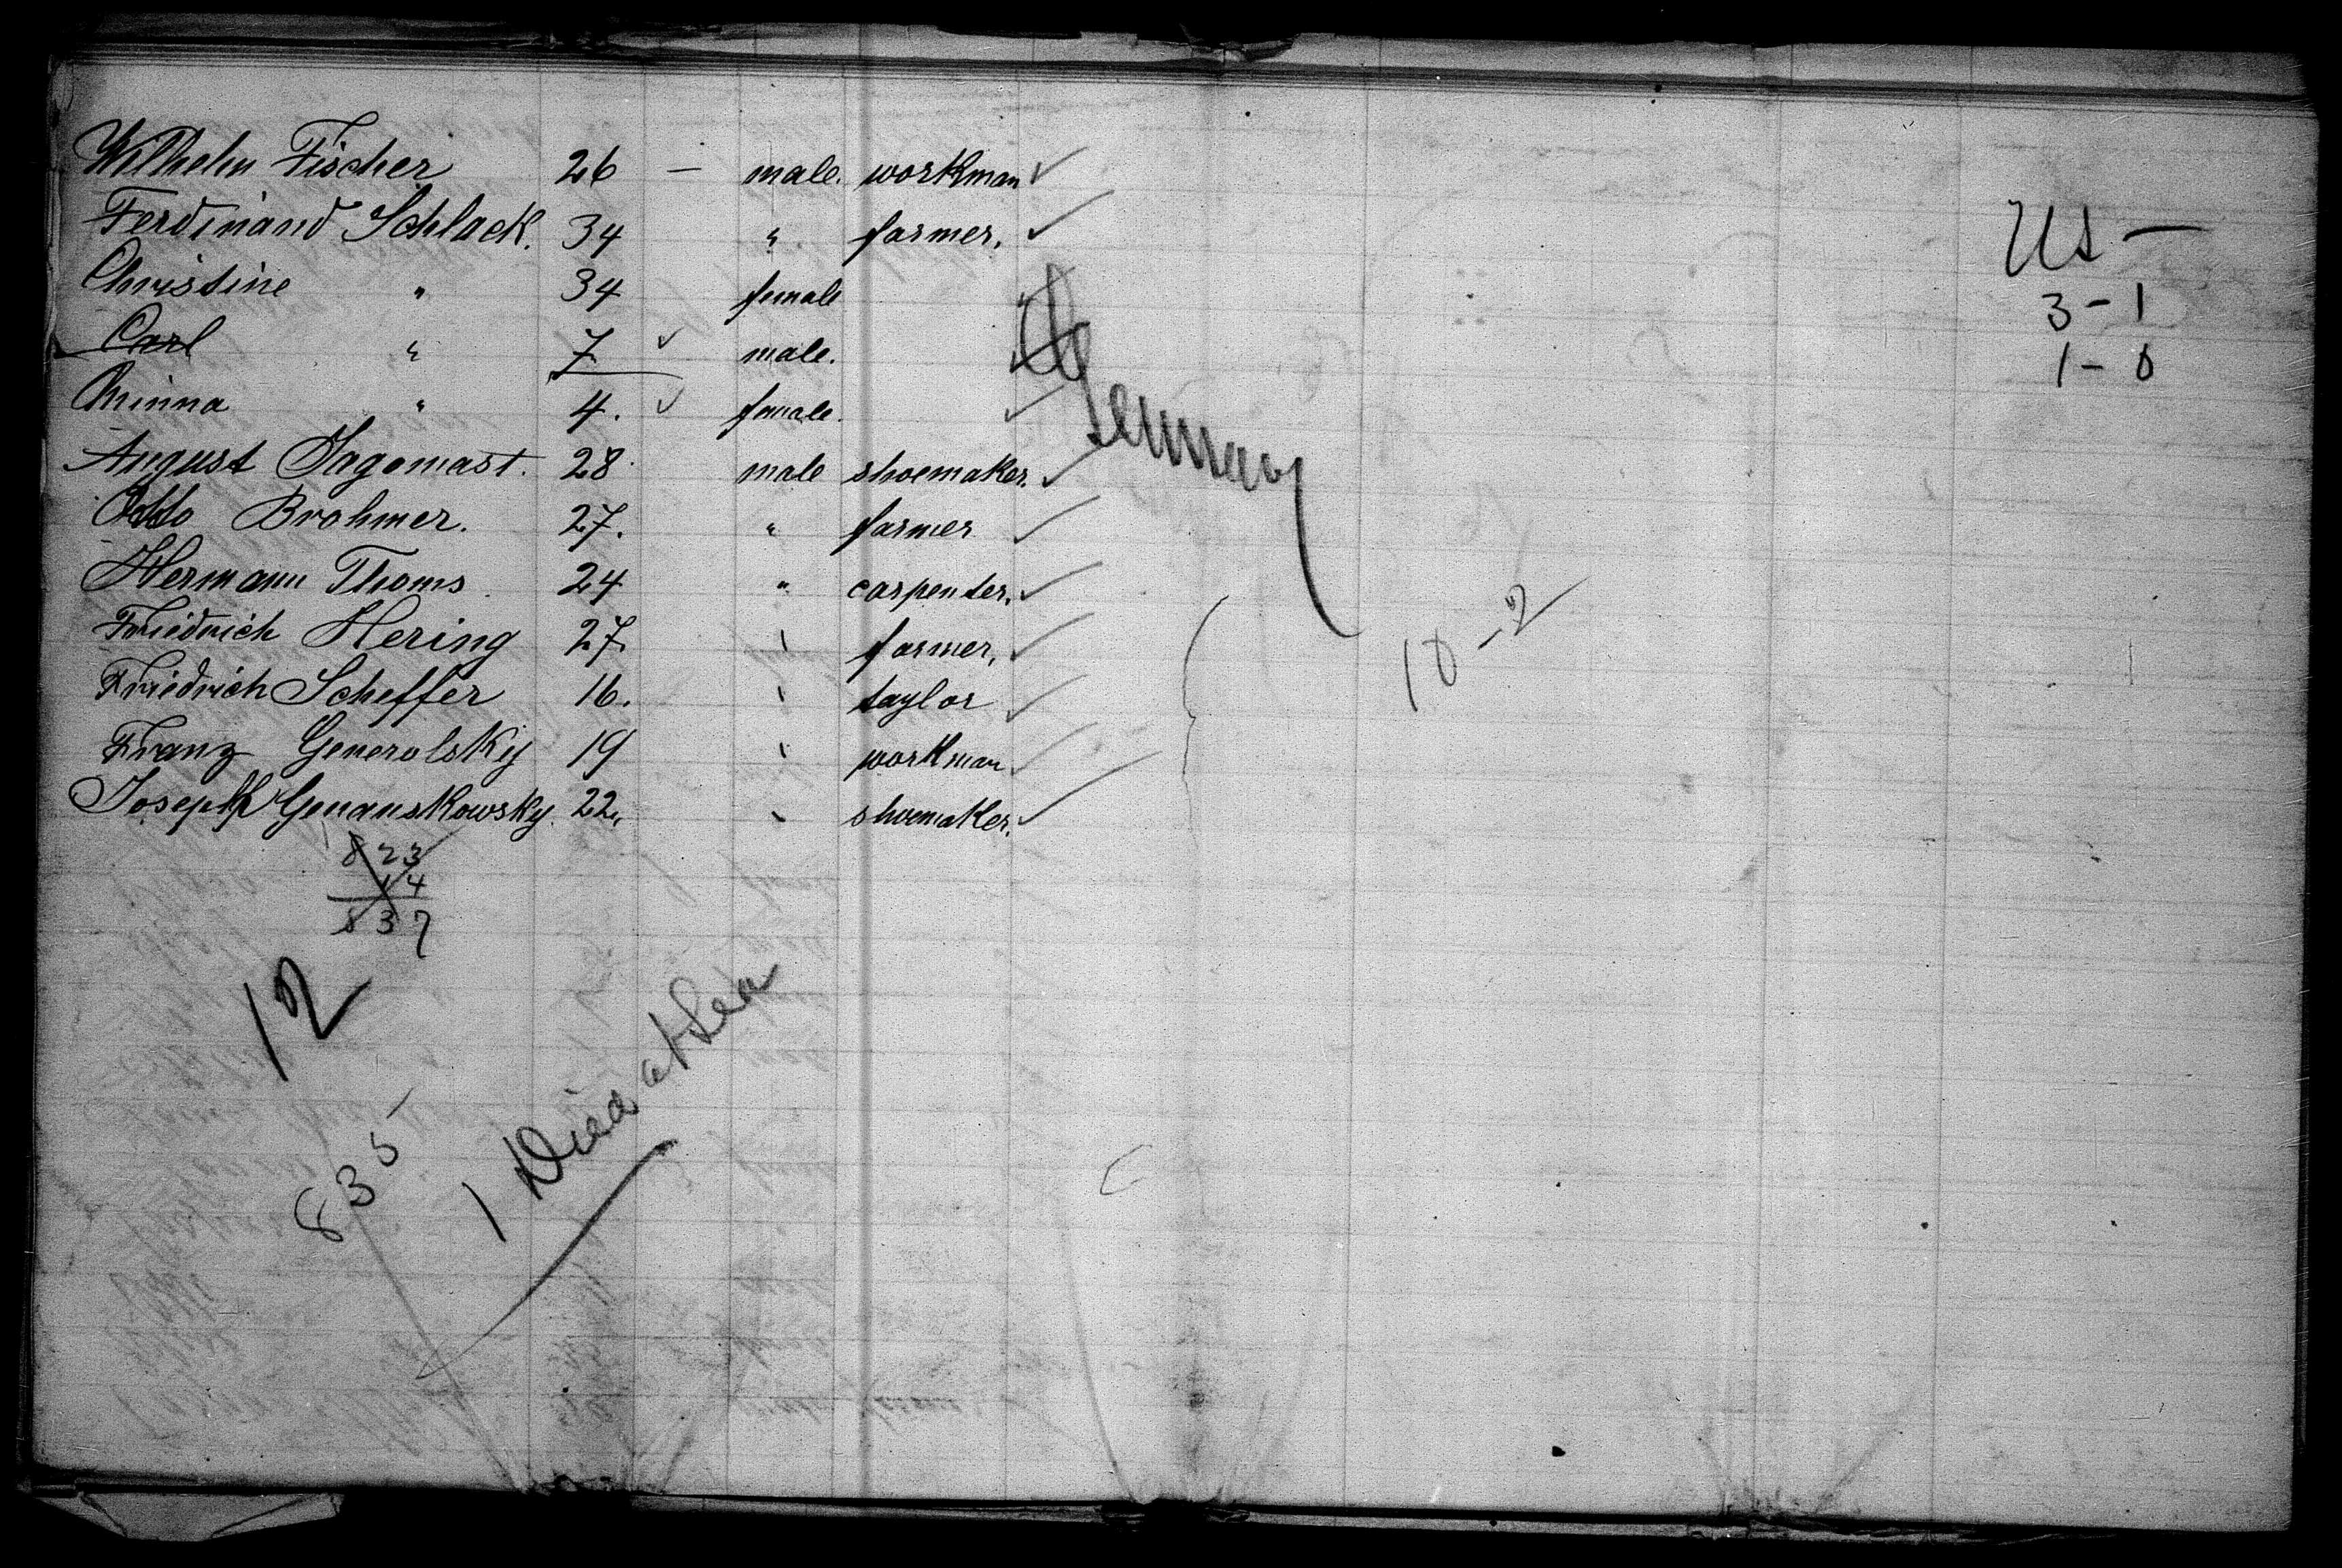 Wilhelm Fischer 26 — male. workman ✓
Ferdinand Schlack. 34 " farmer. ✓
Christine " 34 female
Carl " 7 ✓ male.
Minna " 4. ✓ female. ✓
August Jagomast. 28 male shoemaker. ✓
Otto Brohmer. 27. " farmer ✓
Hermann Thoms. 24 " carpenter. ✓
Friedrich Hering 27. " farmer. ✓
Friedrich Scheffer 16. " taylor ✓
Franz Generolsky 19 " workman ✓
Joseph Genauskowsky. 22. " shoemaker. ✓
Germany
US —
3 - 1
1 - 0
10 - 2
823
14
837
12
835
1 Died at Sea